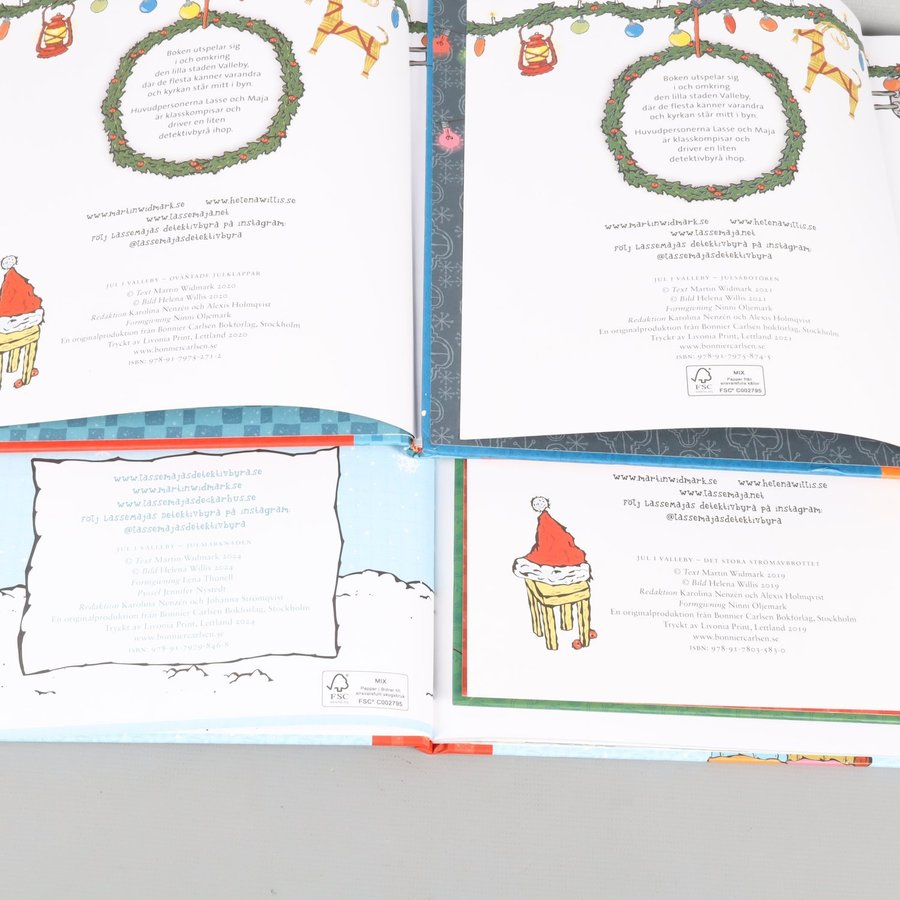 Boken utspelar sig
i och omkring
den lilla staden Valleby,
där de flesta känner varandra
och kyrkan står mitt i byn.
Huvudpersonerna Lasse och Maja
är klasskompisar och
driver en liten
detektivbyrå ihop.
www.martinwidmark.se www.helenawillis.se
www.lassemaja.net
Följ LasseMajas detektivbyrå på instagram:
@lassemajasdetektivbyra
JUL I VALLEBY – OVÄNTADE JULKLAPPAR
© Text Martin Widmark 2020
© Bild Helena Willis 2020
Redaktion Karolina Nenzén och Alexis Holmqvist
Formgivning Ninni Oljemark
En originalproduktion från Bonnier Carlsen Bokförlag, Stockholm
Tryckt av Livonia Print, Lettland 2020
www.bonniercarlsen.se
ISBN: 978-91-7975-271-2
Boken utspelar sig
i och omkring
den lilla staden Valleby,
där de flesta känner varandra
och kyrkan står mitt i byn.
Huvudpersonerna Lasse och Maja
är klasskompisar och
driver en liten
detektivbyrå ihop.
www.martinwidmark.se www.helenawillis.se
www.lassemaja.net
Följ LasseMajas detektivbyrå på instagram:
@lassemajasdetektivbyra
JUL I VALLEBY – JULSABOTÖREN
© Text Martin Widmark 2021
© Bild Helena Willis 2021
Redaktion Karolina Nenzén och Alexis Holmqvist
Formgivning Ninni Oljemark
En originalproduktion från Bonnier Carlsen bokförlag, Stockholm
Tryckt av Livonia Print, Lettland 2021
www.bonniercarlsen.se
ISBN: 978-91-7975-874-5
FSC
MIX
Papper från
ansvarsfulla källor
FSC® C002795
www.lassemajasdetektivbyra.se
www.martinwidmark.se
www.lassemajasdeckarhus.se
Följ LasseMajas detektivbyrå på instagram:
@lassemajasdetektivbyra
© Text Martin Widmark 2024
© Bild Helena Willis 2024
Formgivning Lena Thunell
Pussel Jennifer Nystedt
Redaktion Karolina Nenzén och Johanna Strömqvist
En originalproduktion från Bonnier Carlsen Bokförlag, Stockholm
Tryckt av Livonia Print, Lettland 2024
www.bonniercarlsen.se
ISBN: 978-91-7979-846-8
FSC
MIX
Papper | Bidrar till
ansvarsfullt skogsbruk
FSC® C002795
www.martinwidmark.se www.helenawillis.se
www.lassemaja.net
Följ LasseMajas detektivbyrå på instagram:
@lassemajasdetektivbyra
JUL I VALLEBY – DET STORA STRÖMAVBROTTET
© Text Martin Widmark 2019
© Bild Helena Willis 2019
Redaktion Karolina Nenzén och Alexis Holmqvist
Formgivning Ninni Oljemark
En originalproduktion från Bonnier Carlsen Bokförlag, Stockholm
Tryckt av Livonia Print, Lettland 2019
www.bonniercarlsen.se
ISBN: 978-91-7803-583-0